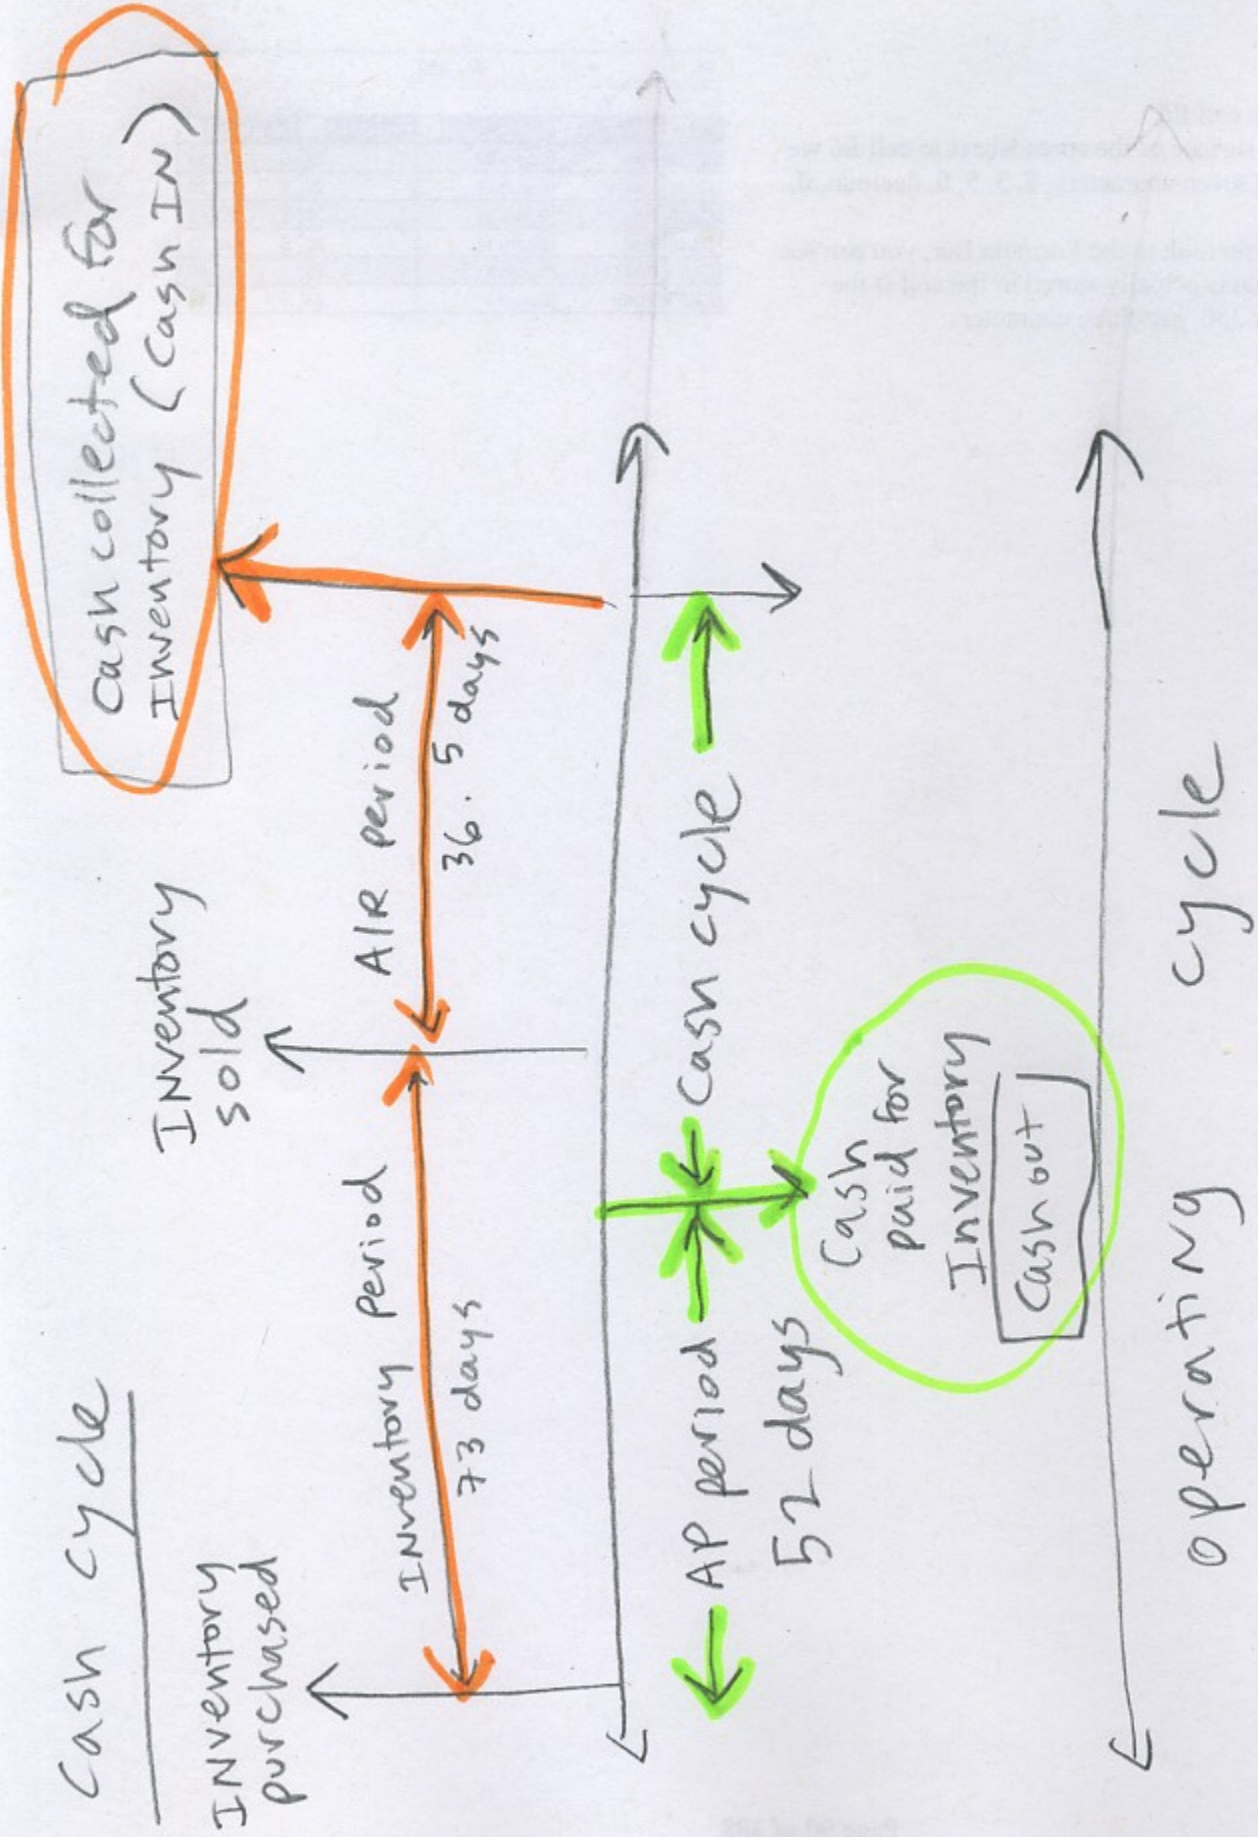 Cash cycle
Inventory
purchased
Inventory
sold
Cash collected for
Inventory (Cash In)
Inventory period
73 days
A/R period
36.5 days
AP period
52 days
Cash cycle
Cash
paid for
Inventory
Cash out
operating cycle